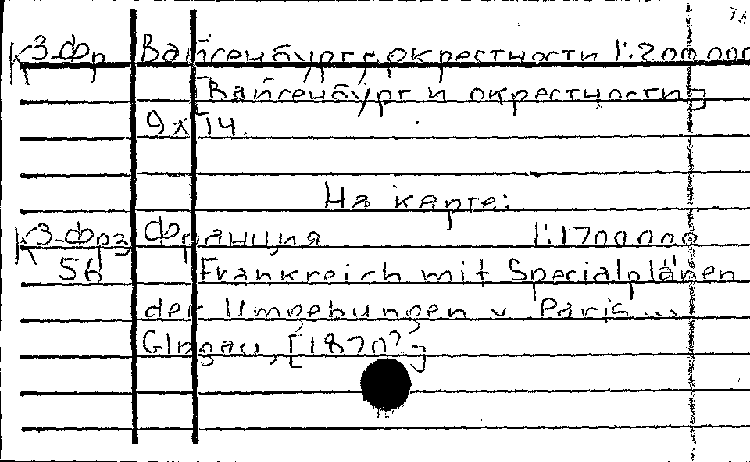 К3-фр Вайсенбург, окрестности 1:200 000
[Вайсенбург и окрестности]
9х14.
На карте:
К3-Фрз Франция 1:1700000
56 Frankreich mit Specialplänen
der Umgebungen v. Paris...
Glogau, [1870?]